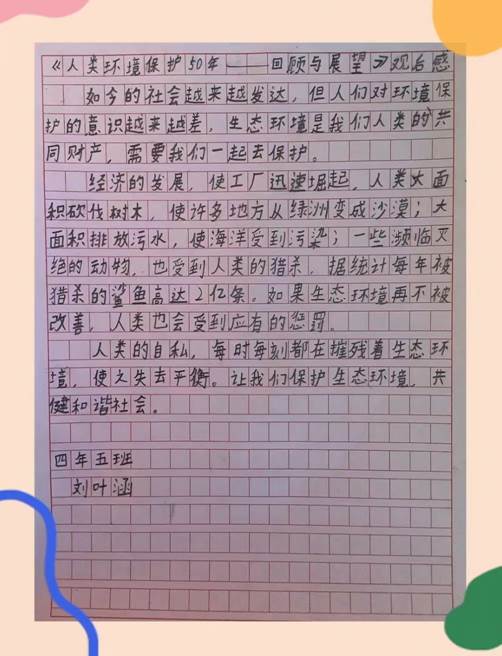 《人类环境保护50年——回顾与展望》观后感
如今的社会越来越发达，但人们对环境保
护的意识越来越差，生态环境是我们人类的共
同财产，需要我们一起去保护。
经济的发展，使工厂迅速堀起，人类大面
积砍伐树木，使许多地方从绿洲变成沙漠；大
面积排放污水，使海洋受到污染；一些濒临灭
绝的动物，也受到人类的猎杀，据统计每年被
猎杀的鲨鱼高达2亿条。如果生态环境再不被
改善，人类也会受到应有的惩罚。
人类的自私，每时每刻都在摧残着生态环
境，使之失去平衡。让我们保护生态环境，共
健和谐社会。
四年五班
刘叶涵